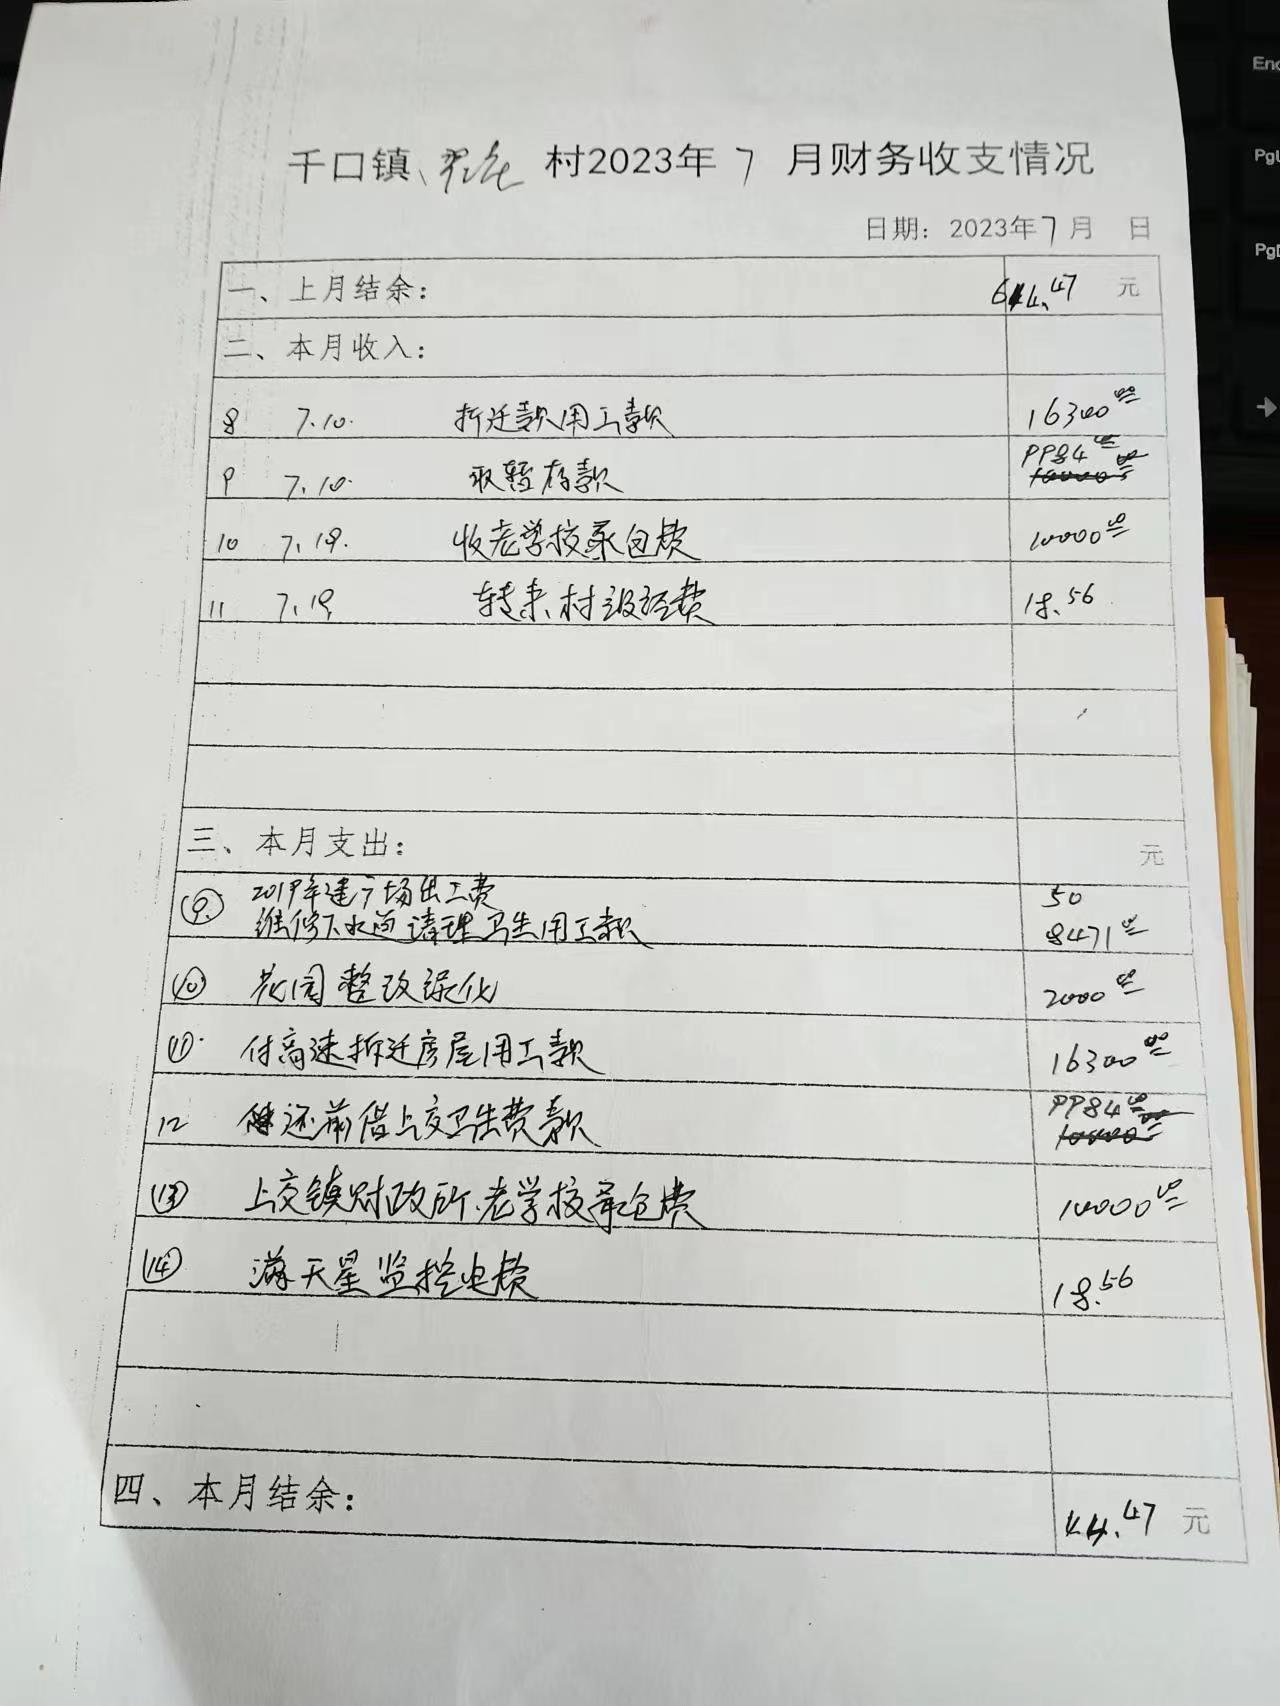 千口镇 村2023年7月财务收支情况
日期：2023年7月 日
一、上月结余： 644.47 元
二、本月收入：
8 7.10. 拆迁款用工款 16300.00
9 7.10. 取暂存款 9984.00
10000.00
10 7.19. 收老学校承包费 10000.00
11 7.19. 转来村级经费 18.56
三、本月支出： 元
⑨ 2019年建广场出工费 50
维修下水道清理卫生用工款 8471.00
⑩ 花园整改绿化 2000.00
⑪ 付高速拆迁房屋用工款 16300.00
12 还前借上交卫生费款 9984.00
10000.00
⑬ 上交镇财政所老学校承包费 10000.00
⑭ 满天星监控电费 18.56
四、本月结余： 44.47 元
End
PgU
PgD